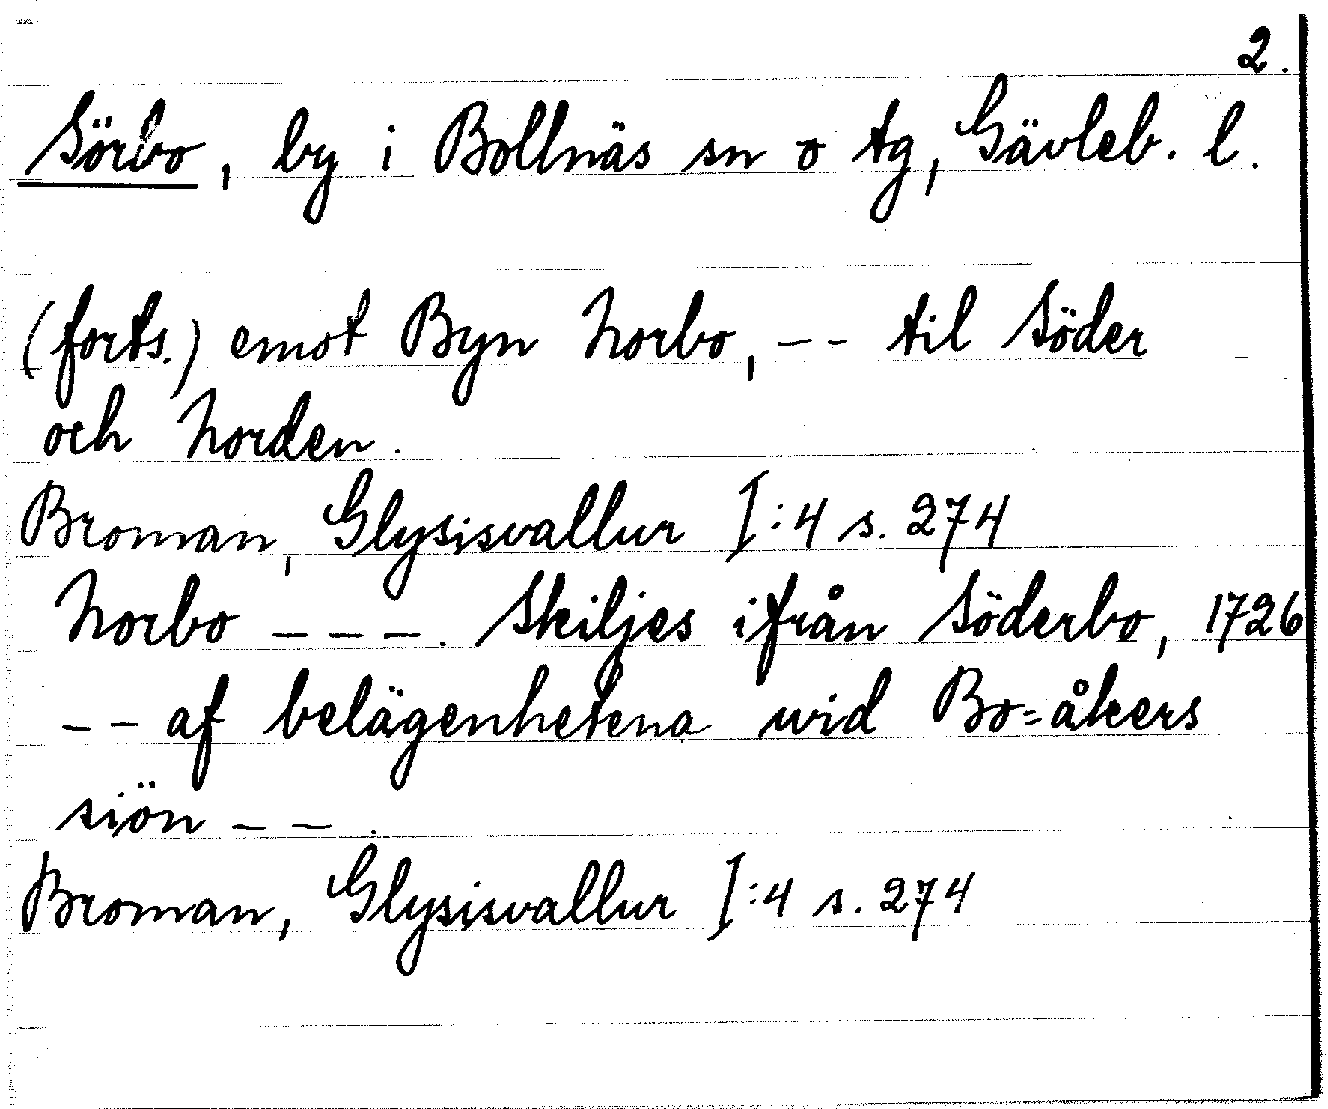 2.
Sörbo, by i Bollnäs sn o tg, Gävleb. l.
(forts.) emot Byn Norbo, -- til Söder
och Norden.
Broman, Glysisvallur I:4 s. 274
Norbo ---. Skiljes ifrån Söderbo, 1726
-- af belägenhetena wid Bo=åkers
siön --.
Broman, Glysisvallur I:4 s. 274